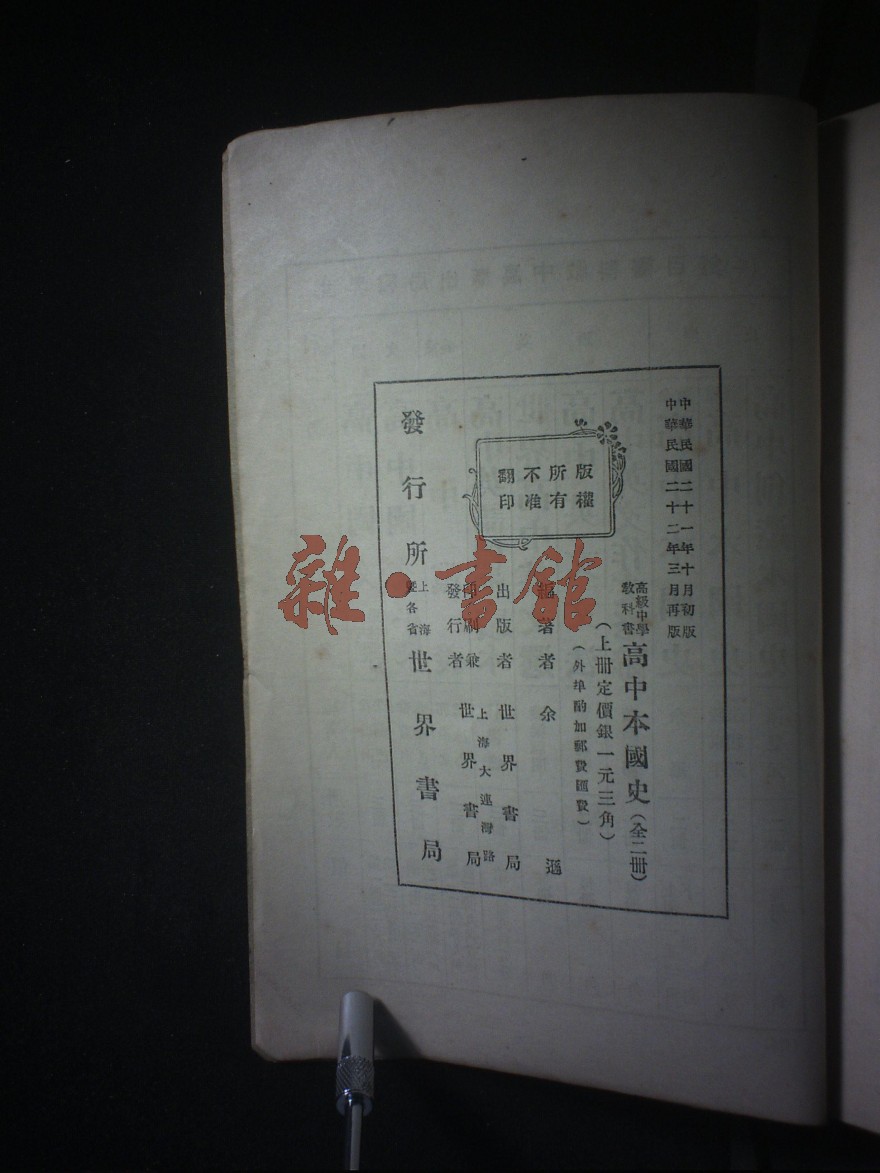 中華民國二十一年十月初版
中華民國二十二年三月再版
高級中學
教科書
高中本國史(全二册)
(上册定價銀一元三角)
(外埠酌加郵費匯費)
版權
所有
不准
翻印
編著者 余遜
出版者 世界書局
上海大連灣路
印刷兼
發行者
世界書局
發行所
上海
暨各省
世界書局
雜·書館